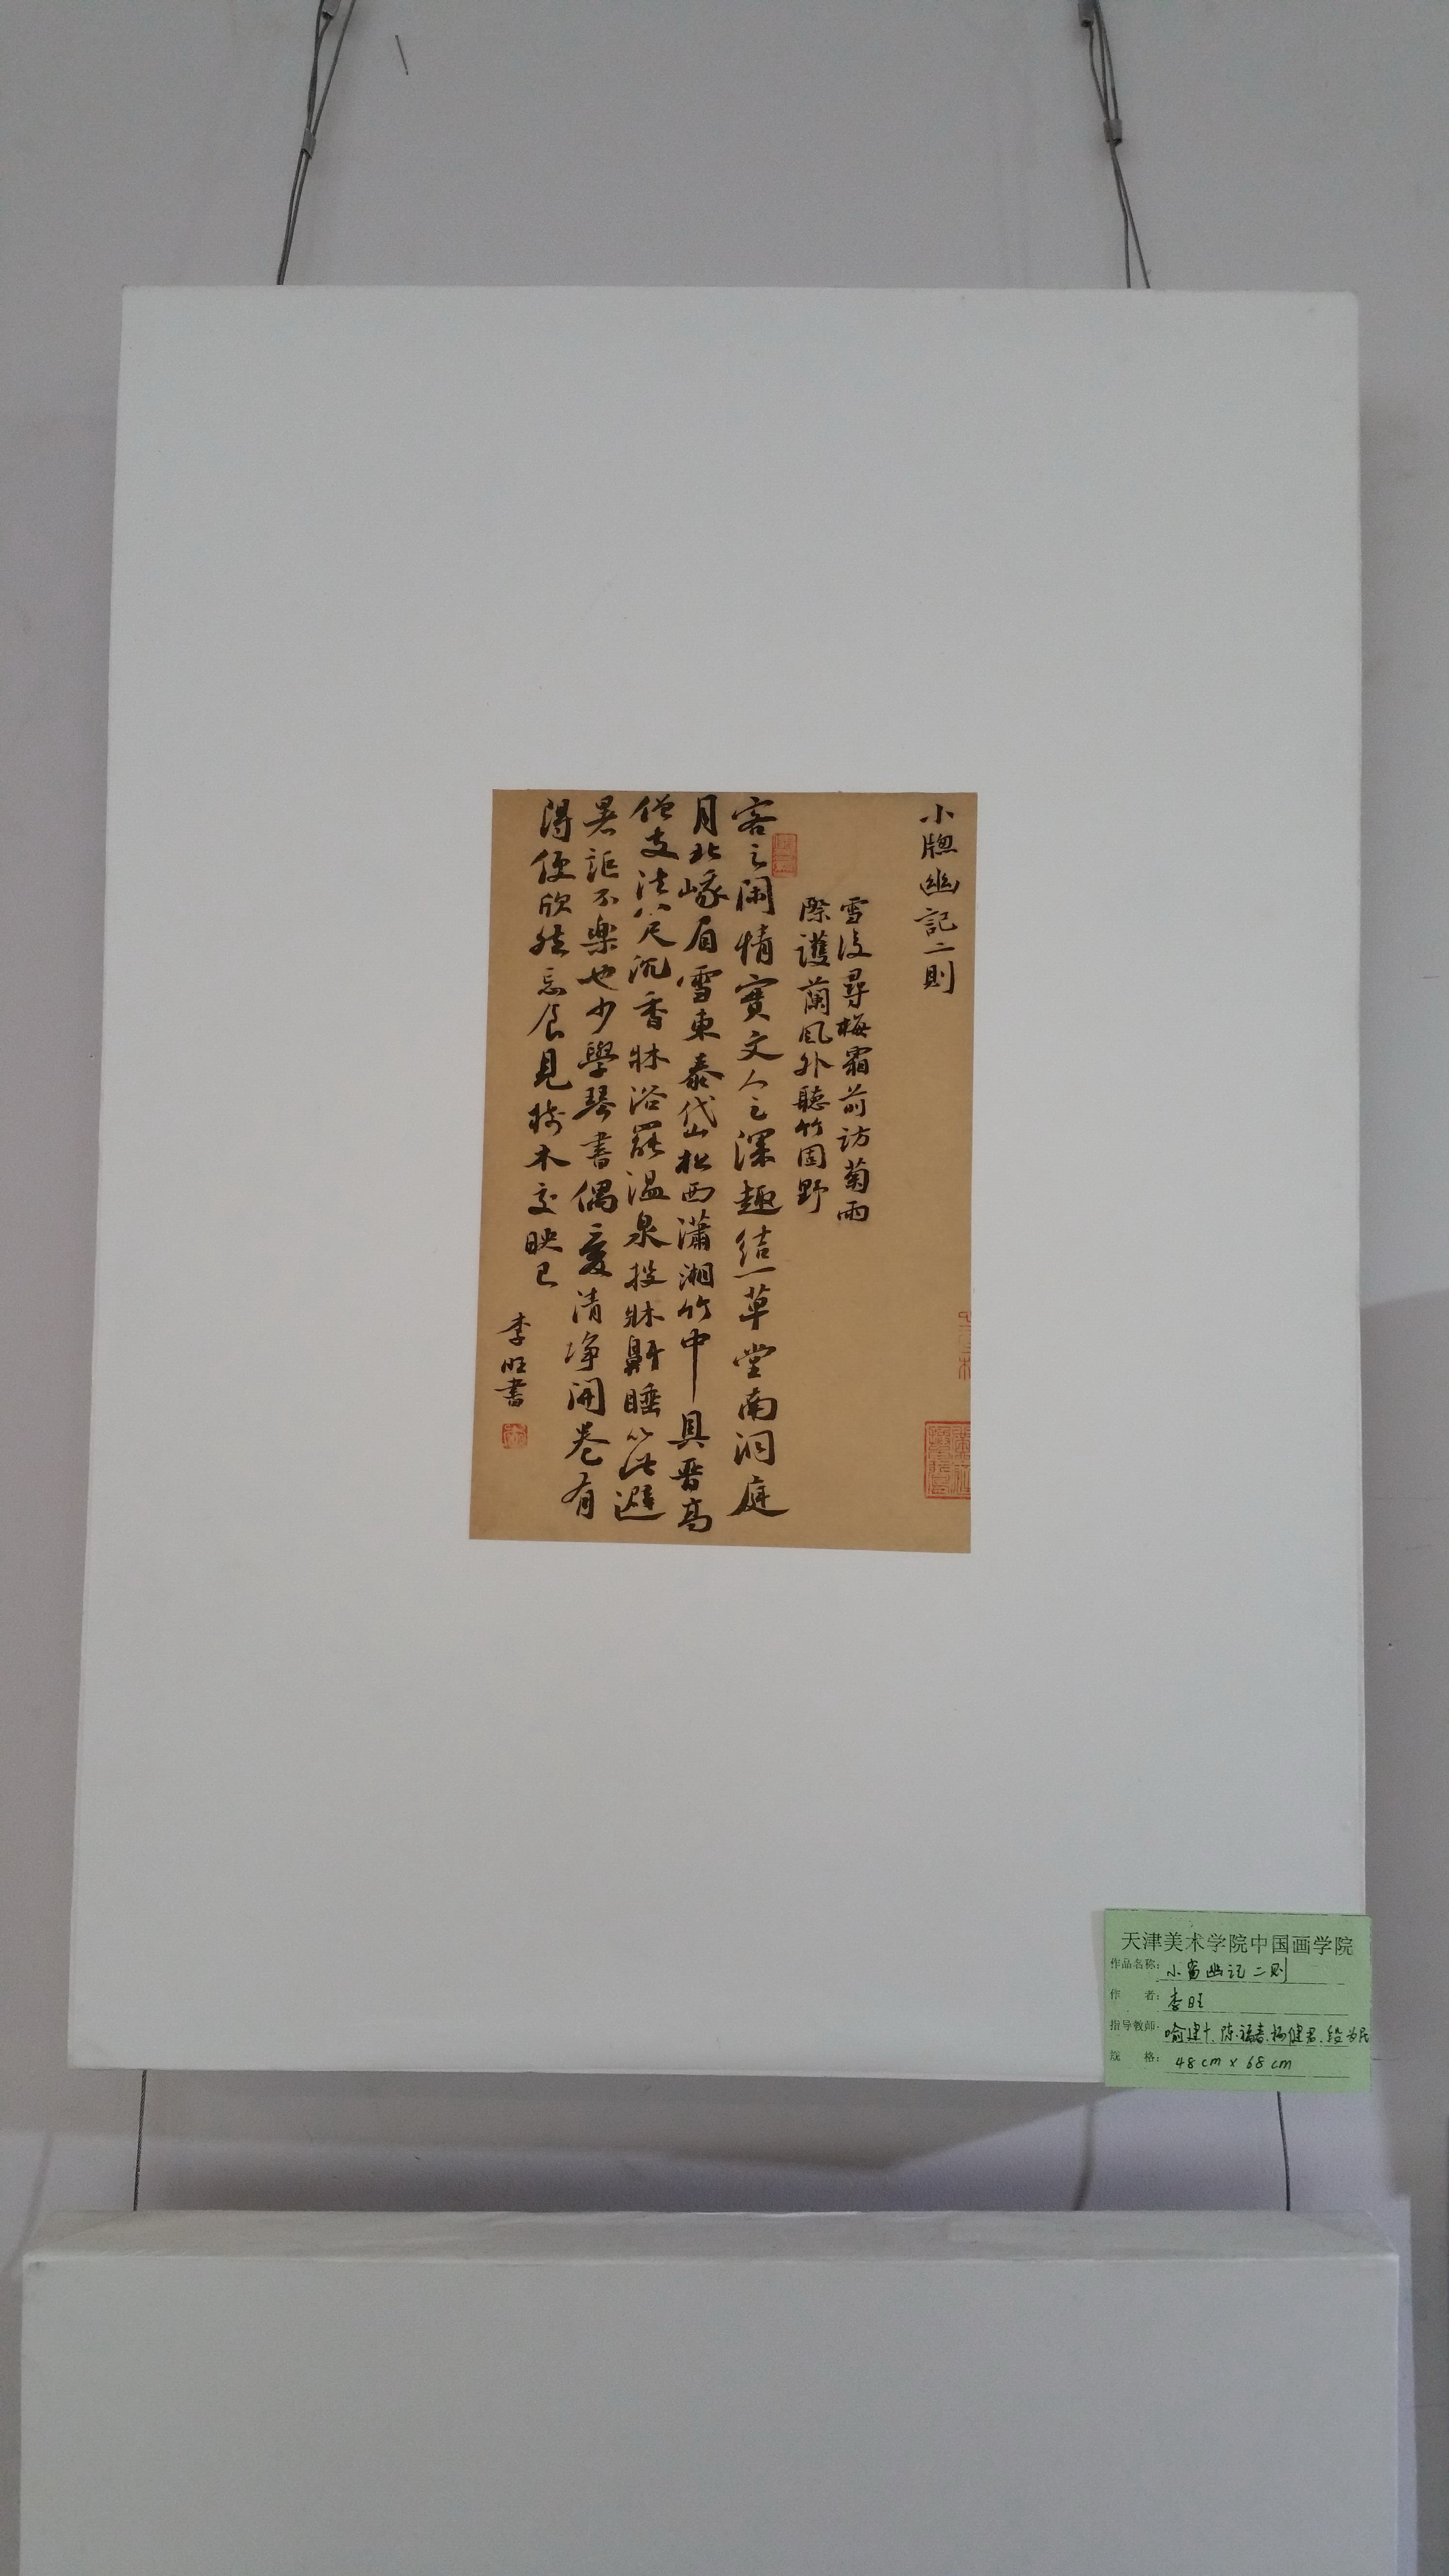 小牕幽記二則
雪後尋梅霜前訪菊雨
際護蘭風外聽竹固野
客之閑情實文人之深趣結一草堂南洞庭
月北峨眉雪東泰岱松西瀟湘竹中具晋高
僧支法八尺沉香牀浴罷温泉投牀鼾睡以此避
暑詎不樂也少學琴書偶愛清净開卷有
得便欣然忘食見樹木交映已
李旺書
天津美术学院中国画学院
作品名称：小窗幽记二则
作 者：李旺
指导教师：喻建十、陈福春、杨健君、段为民
规 格：48cm x 68cm